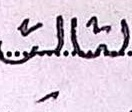 لثالث